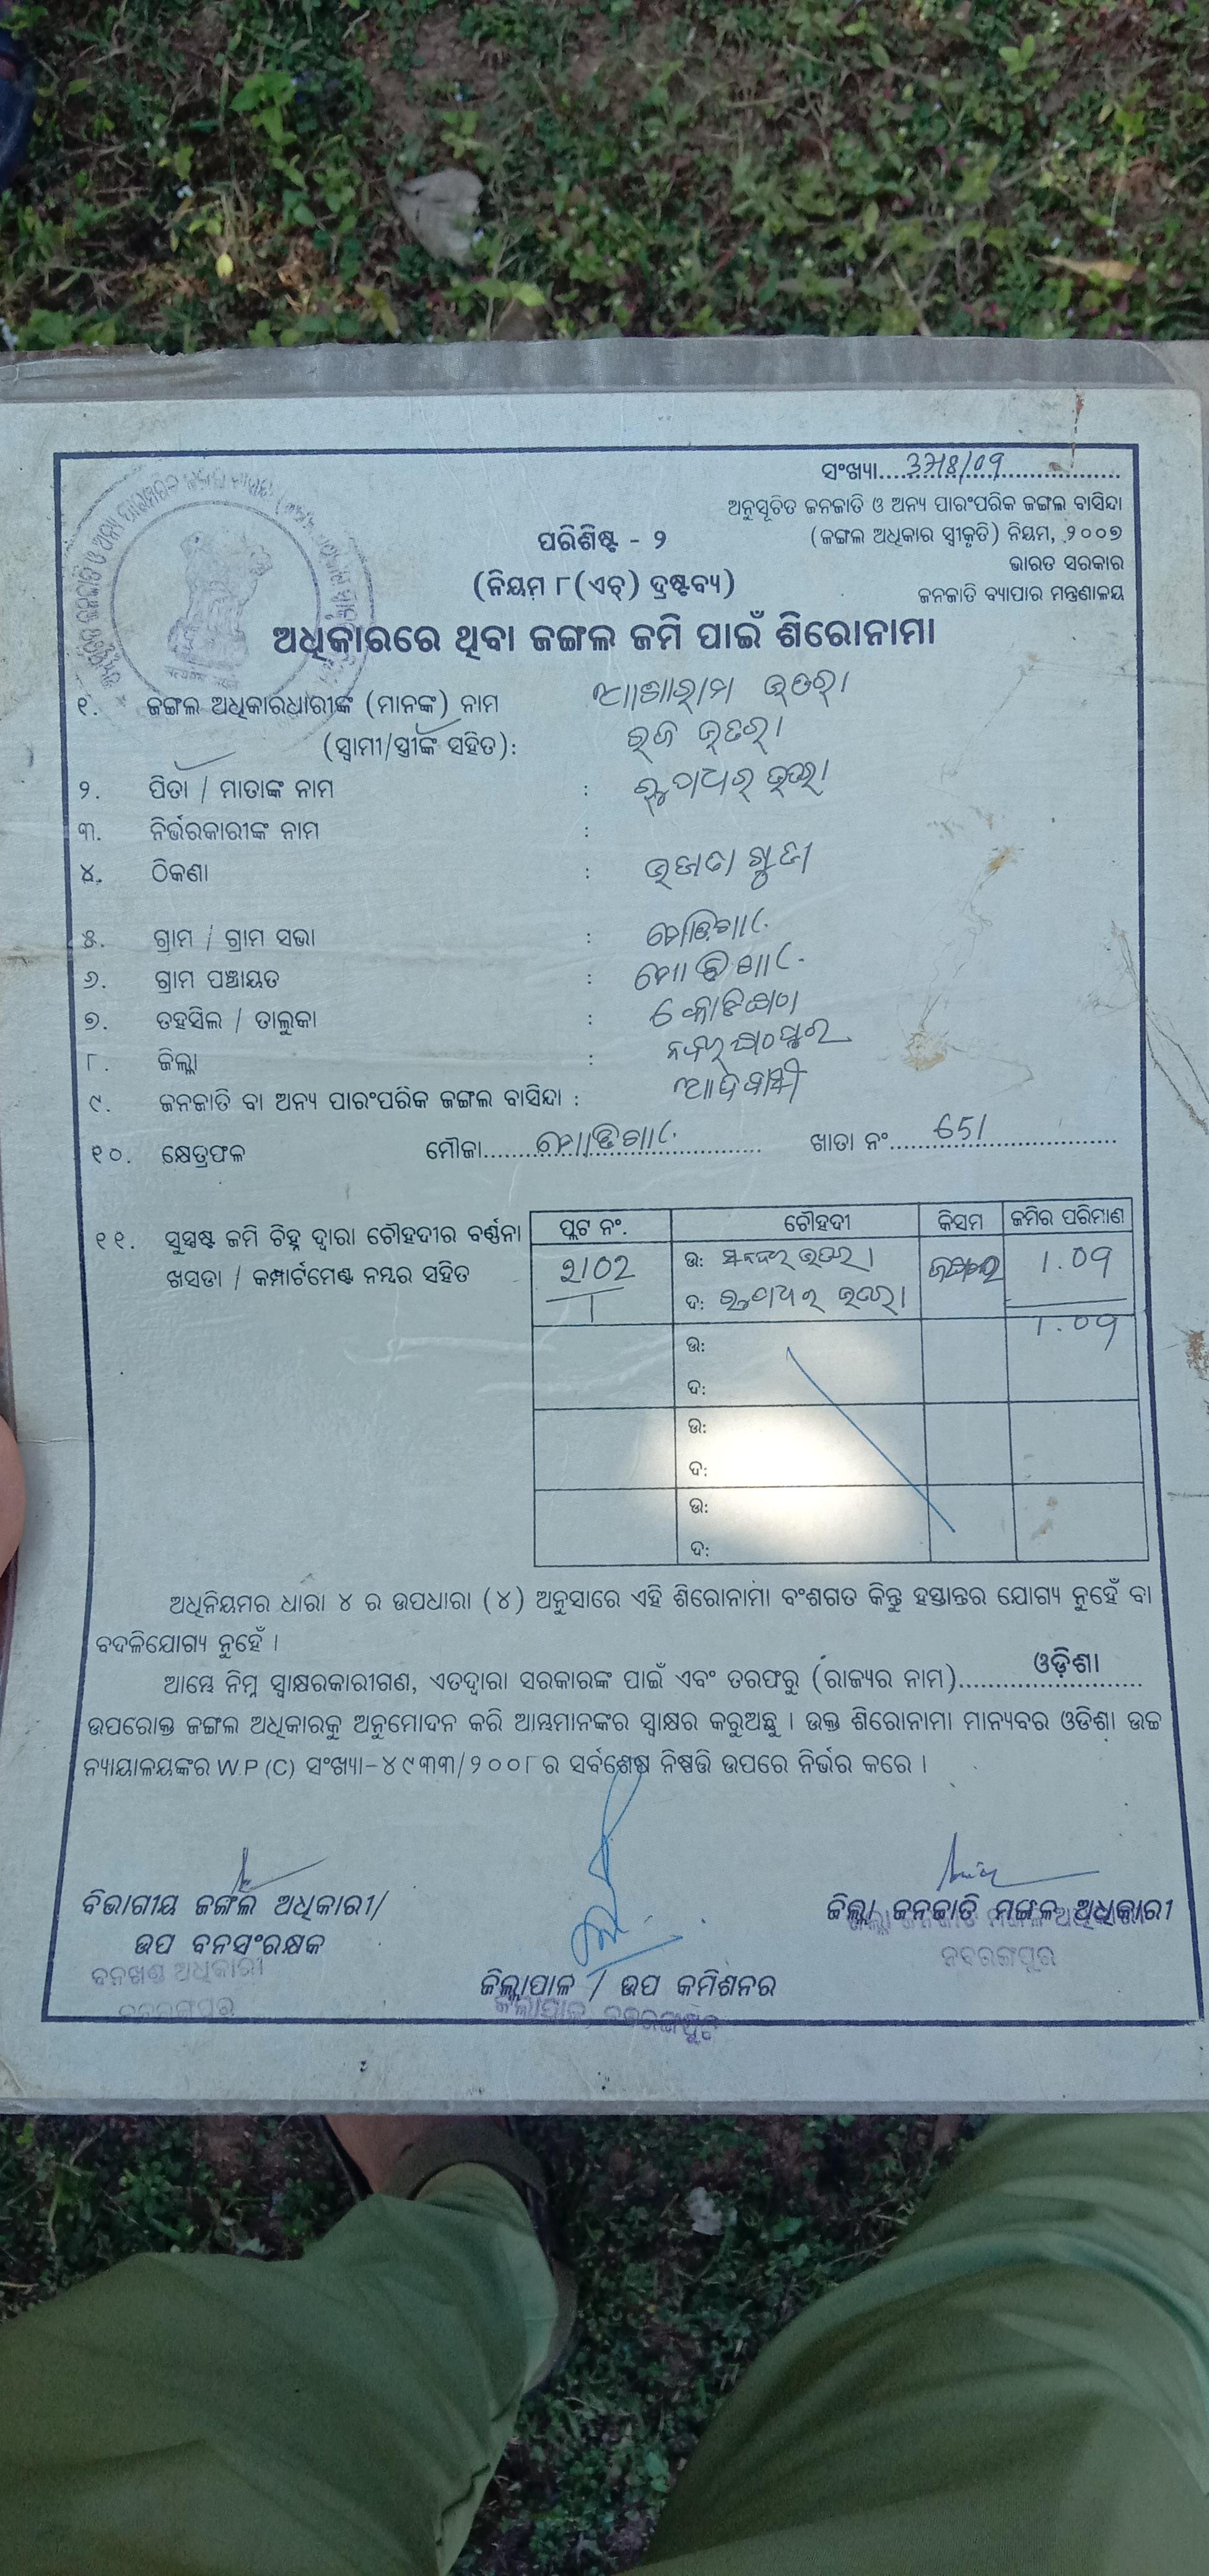 ସଂଖ୍ୟା....................................
ଅନୁସୂଚିତ ଜନଜାତି ଓ ଅନ୍ୟ ପାରଂପରିକ ଜଙ୍ଗଲ ବାସିନ୍ଦା
(ଜଙ୍ଗଲ ଅଧିକାର ସ୍ୱୀକୃତି) ନିୟମ, ୨୦୦୭
ଭାରତ ସରକାର
ଜନଜାତି ବ୍ୟାପାର ମନ୍ତ୍ରଣାଳୟ
ପରିଶିଷ୍ଟ - ୨
(ନିୟମ ୮(ଏଚ୍) ଦ୍ରଷ୍ଟବ୍ୟ)
ଅଧିକାରରେ ଥିବା ଜଙ୍ଗଲ ଜମି ପାଇଁ ଶିରୋନାମା
୧. ଜଙ୍ଗଲ ଅଧିକାରଧାରୀଙ୍କ (ମାନଙ୍କ) ନାମ
(ସ୍ୱାମୀ/ସ୍ତ୍ରୀଙ୍କ ସହିତ):
୨. ପିତା / ମାତାଙ୍କ ନାମ :
୩. ନିର୍ଭରକାରୀଙ୍କ ନାମ :
୪. ଠିକଣା :
୫. ଗ୍ରାମ / ଗ୍ରାମ ସଭା :
୬. ଗ୍ରାମ ପଞ୍ଚାୟତ :
୭. ତହସିଲ / ତାଲୁକା :
୮. ଜିଲ୍ଲା : ନବରଙ୍ଗପୁର
୯. ଜନଜାତି ବା ଅନ୍ୟ ପାରଂପରିକ ଜଙ୍ଗଲ ବାସିନ୍ଦା : ଆଦିବାସୀ
୧୦. କ୍ଷେତ୍ରଫଳ ମୌଜା.................................... ଖାତା ନଂ.......651.......
୧୧. ସୁସ୍ପଷ୍ଟ ଜମି ଚିହ୍ନ ଦ୍ୱାରା ଚୌହଦୀର ବର୍ଣ୍ଣନା
ଖସଡା / କମ୍ପାର୍ଟମେଣ୍ଟ ନମ୍ବର ସହିତ
ପ୍ଲଟ ନଂ. ଚୌହଦୀ କିସମ ଜମିର ପରିମାଣ
ଉ: 1.09
ଦ: 1.09
ଉ:
ଦ:
ଉ:
ଦ:
ଉ:
ଦ:
ଅଧିନିୟମର ଧାରା ୪ ର ଉପଧାରା (୪) ଅନୁସାରେ ଏହି ଶିରୋନାମା ବଂଶଗତ କିନ୍ତୁ ହସ୍ତାନ୍ତର ଯୋଗ୍ୟ ନୁହେଁ ବା
ବଦଳିଯୋଗ୍ୟ ନୁହେଁ ।
ଆମ୍ଭେ ନିମ୍ନ ସ୍ୱାକ୍ଷରକାରୀଗଣ, ଏତଦ୍ୱାରା ସରକାରଙ୍କ ପାଇଁ ଏବଂ ତରଫରୁ (ରାଜ୍ୟର ନାମ)......ଓଡ଼ିଶା......
ଉପରୋକ୍ତ ଜଙ୍ଗଲ ଅଧିକାରକୁ ଅନୁମୋଦନ କରି ଆମ୍ଭମାନଙ୍କର ସ୍ୱାକ୍ଷର କରୁଅଛୁ । ଉକ୍ତ ଶିରୋନାମା ମାନ୍ୟବର ଓଡିଶା ଉଚ୍ଚ
ନ୍ୟାୟାଳୟଙ୍କର W.P (C) ସଂଖ୍ୟା-୪୯୩୩/୨୦୦୮ ର ସର୍ବଶେଷ ନିଷ୍ପତ୍ତି ଉପରେ ନିର୍ଭର କରେ ।
ବିଭାଗୀୟ ଜଙ୍ଗଲ ଅଧିକାରୀ/
ଉପ ବନସଂରକ୍ଷକ
ବନଖଣ୍ଡ ଅଧିକାରୀ
ନବରଙ୍ଗପୁର
ଜିଲ୍ଲାପାଳ / ଉପ କମିଶନର
ଜିଲ୍ଲାପାଳ, ନବରଙ୍ଗପୁର
ଜିଲ୍ଲା ଜନଜାତି ମଙ୍ଗଳ ଅଧିକାରୀ
ନବରଙ୍ଗପୁର